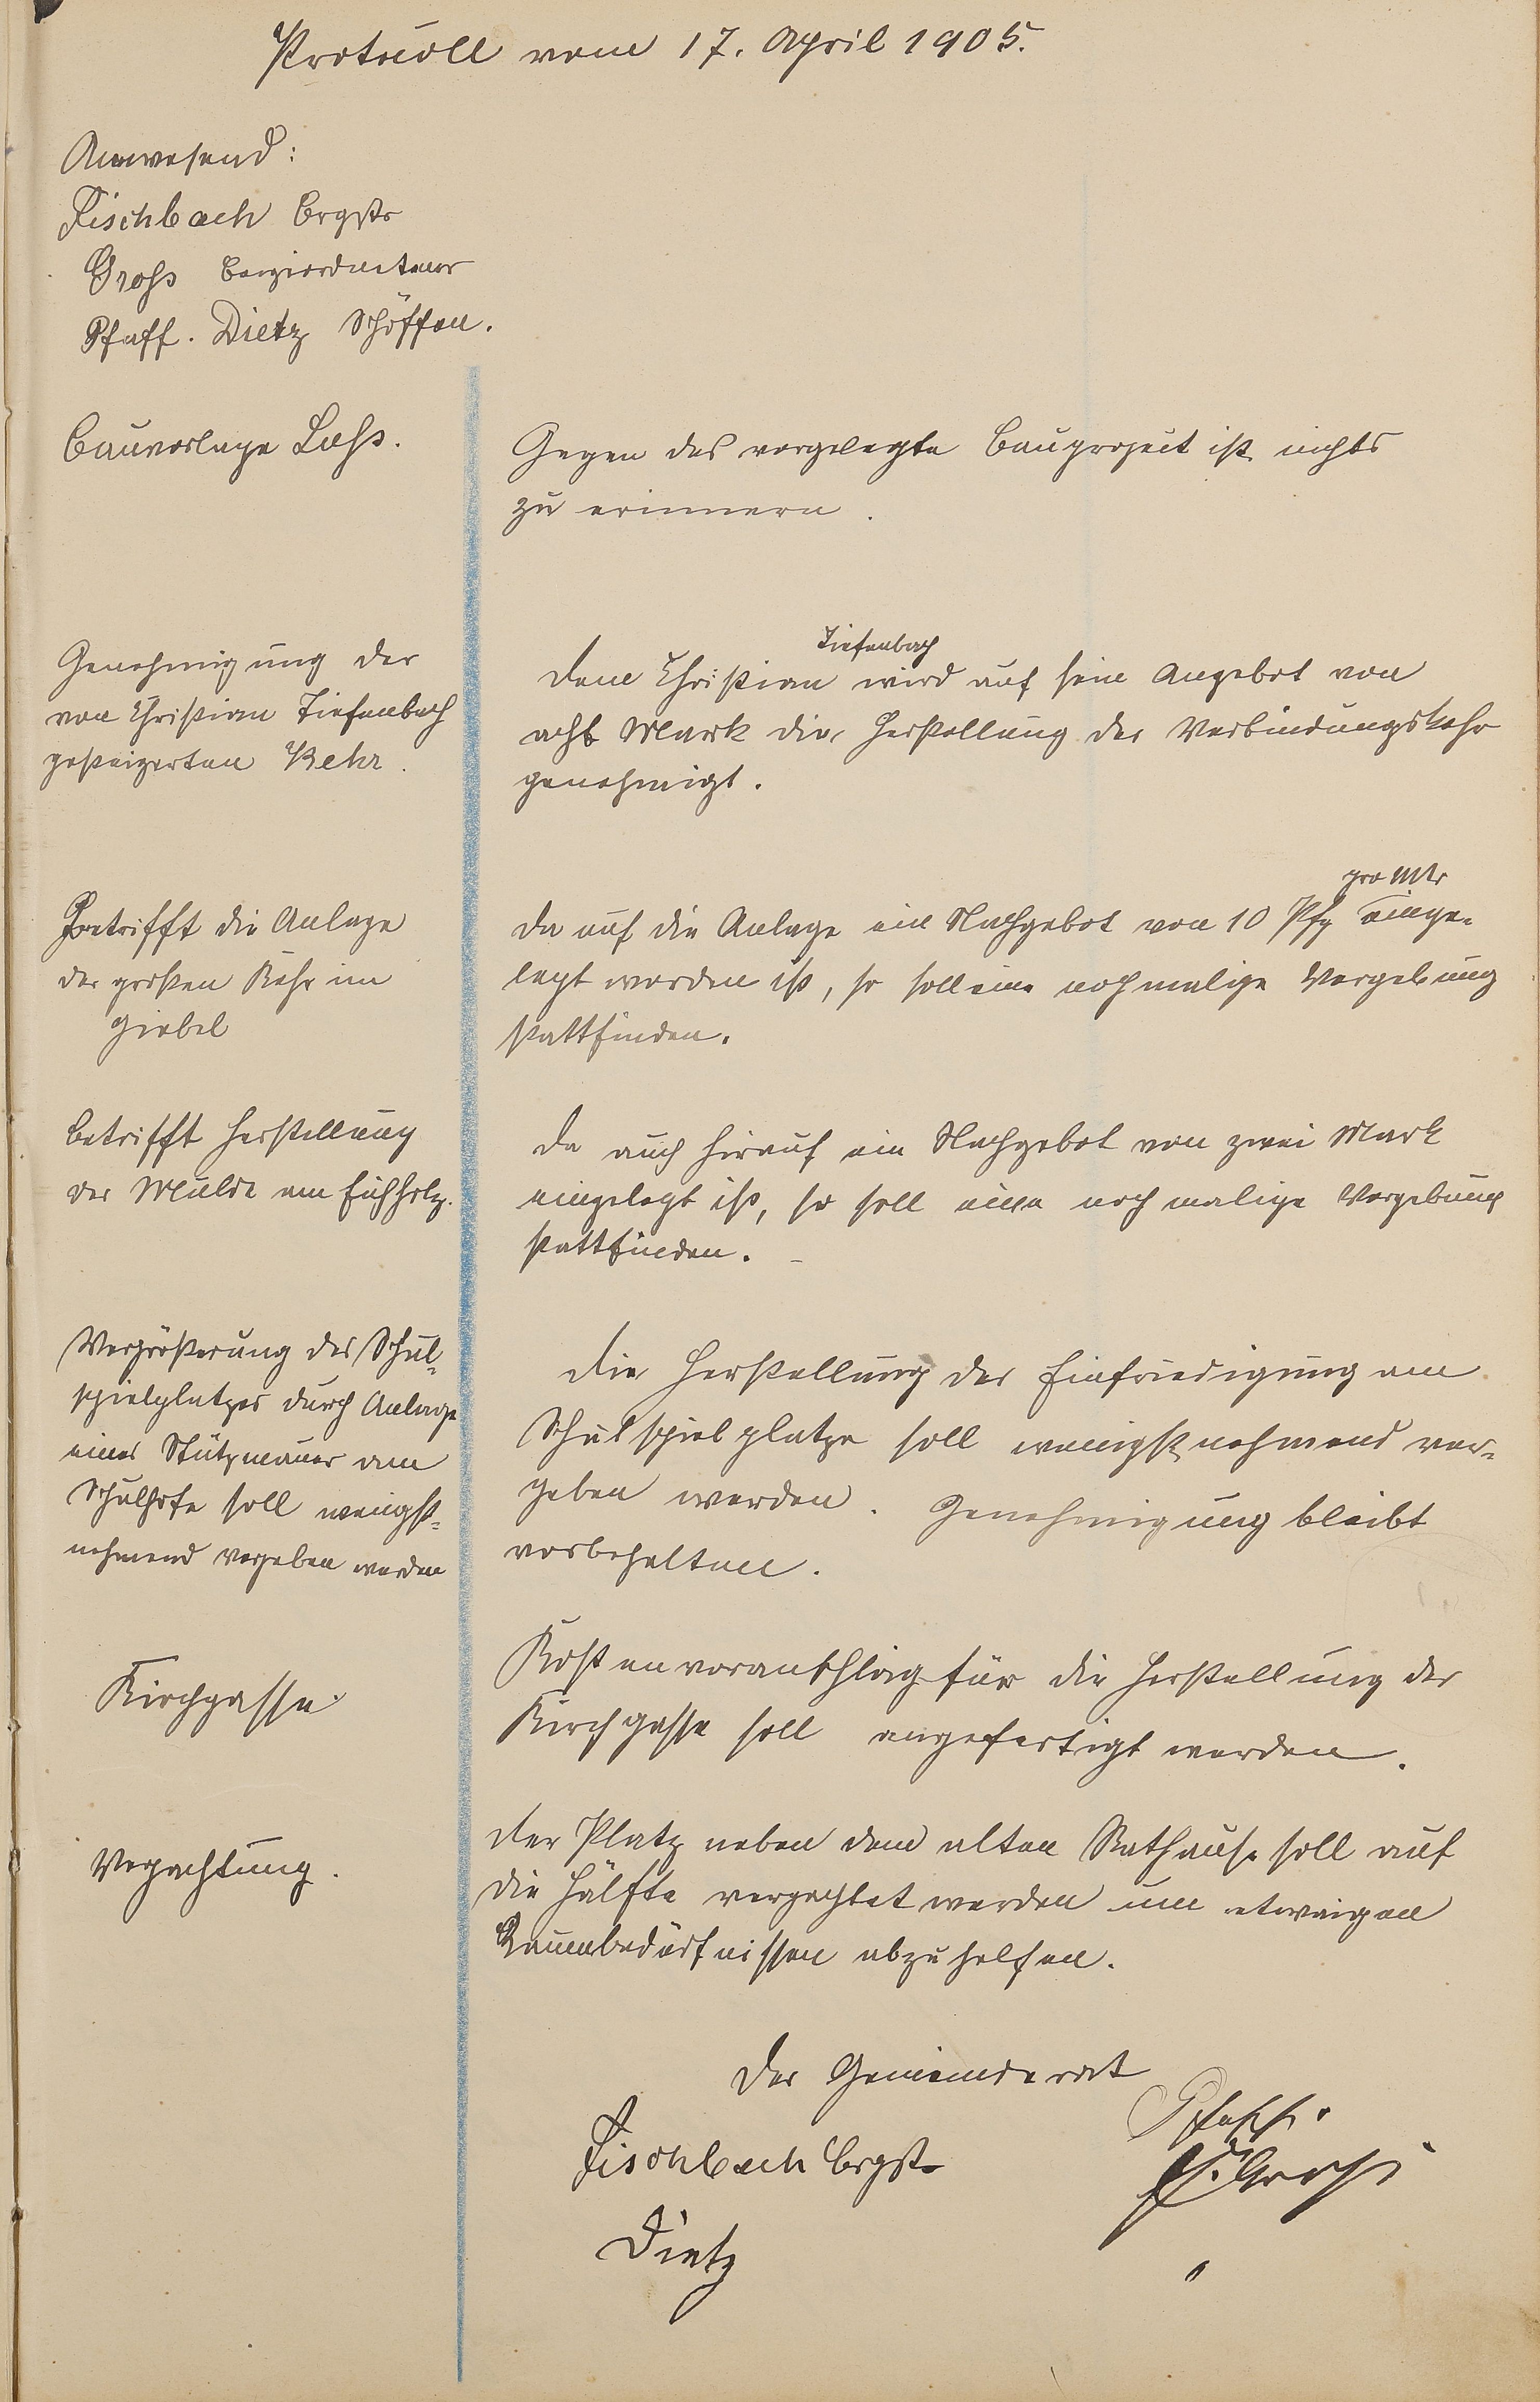 Protocoll vom 17. April 1905.
Anwesend:
Fischbach Brgstr
Gross Beigeordneter
Pfaff. Dietz Schöffen.
Bauvorlage Lass.
Gegen das vorgelegte Bauproject ist nichts
zu erinnern.
Genehmigung der
von Christian Tiefenbach
gesteigerten Kehr.
Tiefenbach
Dem Christian wird auf sein Angebot von
acht Mark die Herstellung der Verbindungskehr
genehmigt.
Betrifft die Anlage
der großen Kehr im
Giebel
pro Mtr
Da auf die Anlage ein Nachgebot von 10 Pfg einge-
legt worden ist, so soll eine nochmalige Vergebung
stattfinden.
Betrifft Herstellung
der Mulde am Eichholz.
Da auch hirauf ein Nachgebot von zwei Mark
eingelegt ist, so soll eine noch malige Vergebung
stattfinden.
Vergrößerung des Schul-
spielplatzes durch Anlage
einer Stützmauer am
Schulhofe soll wenigst-
nehmend vergeben werden
Die Herstellung der Einfriedigung am
Schulspielplatze soll wenigstnehmend ver-
geben werden. Genehmigung bleibt
vorbehalten.
Kirchgasse
Kostenvoranschlag für die Herstellung der
Kirchgasse soll angefertigt werden.
Verpachtung.
Der Platz neben dem alten Rathause soll auf
die Hälfte verpachtet werden um etwaigen
Raumbedürfnissen abzuhelfen.
Der Gemeinderat
Fischbach Brgstr
Pfaff.
Gross
Dietz